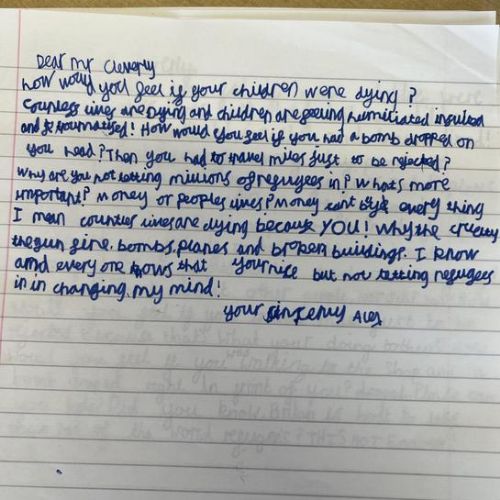 Dear Mr Cleverly
how would you feel if your children were dying?
Countless lives are dying and children are feeling humiliated insulted
and traumatised! How would you feel if you had a bomb dropped on
you head? Then you had to travel miles just to be rejected?
why are you not letting millions of refugees in? what's more
important? money or peoples lives? money every thing
I mean countless lives are dying because YOU! Why the cruelty
the gun fire. bombs. planes and broken buildings. I know
and every one knows that your nise but not letting refugees
in in changing my mind!
your sincerely Alex